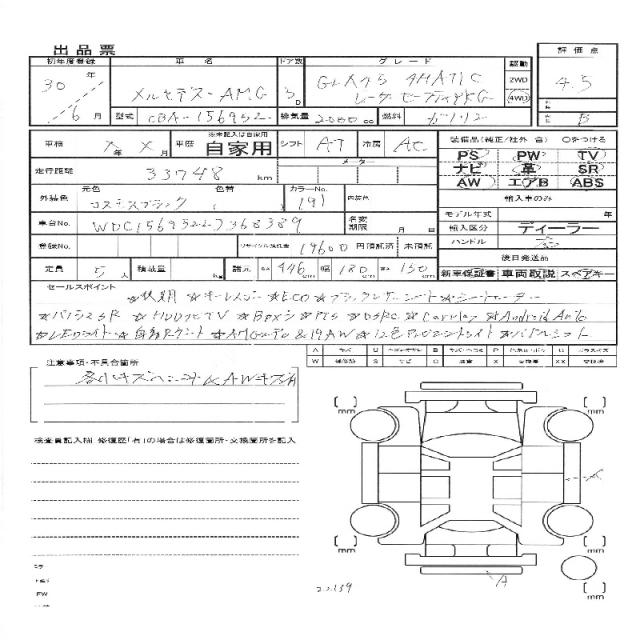 出品票
初年度登録 車名 ドア数 グレード 駆動 評価点
30年 メルセデス-AMG 5D GLA45 4MATIC 2WD 4.5
レーダーセーフティPKG 4WD
6月 型式 CBA-156952 排気量 2000cc 燃料 ガソリン B
車検 年 月 車歴 ※未記入は自家用 自家用 シフト AT 冷房 AC 装備品(純正/社外 含) ○をつける
走行距離 33748 km メーター PS PW TV
ナビ 革 SR
外装色 元色 コスモスブラック 色替 ( カラーNo. 191 内装色 AW エアB ABS
輸入車のみ
車台No. WDC1569522J368389 名変期限 月 日 モデル年式 年
輸入区分 ディーラー
登録No. リサイクル預託金 19600 円預託済 未預託 ハンドル 右
後日発送品
定員 5人 積載量 kg 諸元 長さ 446cm 幅 180cm 高さ 150cm 新車保証書 車両取説 スペアキー
セールスポイント
☆後期 ☆キーレスゴー ☆ECO ☆ブラックレザーシート ☆シートヒーター
☆パノラミSR ☆HDDナビTV ☆Bカメラ ☆PTS ☆DSRC ☆Carplay ☆Android Auto
☆LEDライト ☆自動Rゲート ☆AMGエアロ&19AW ☆12色アンビエントライト ☆パドルシフト
注意事項・不具合箇所
各小キズヘコミ AWキズ有
検査員記入欄 修復歴「有」の場合は修復箇所・交換箇所を記入
mm mm
mm mm
A
22159